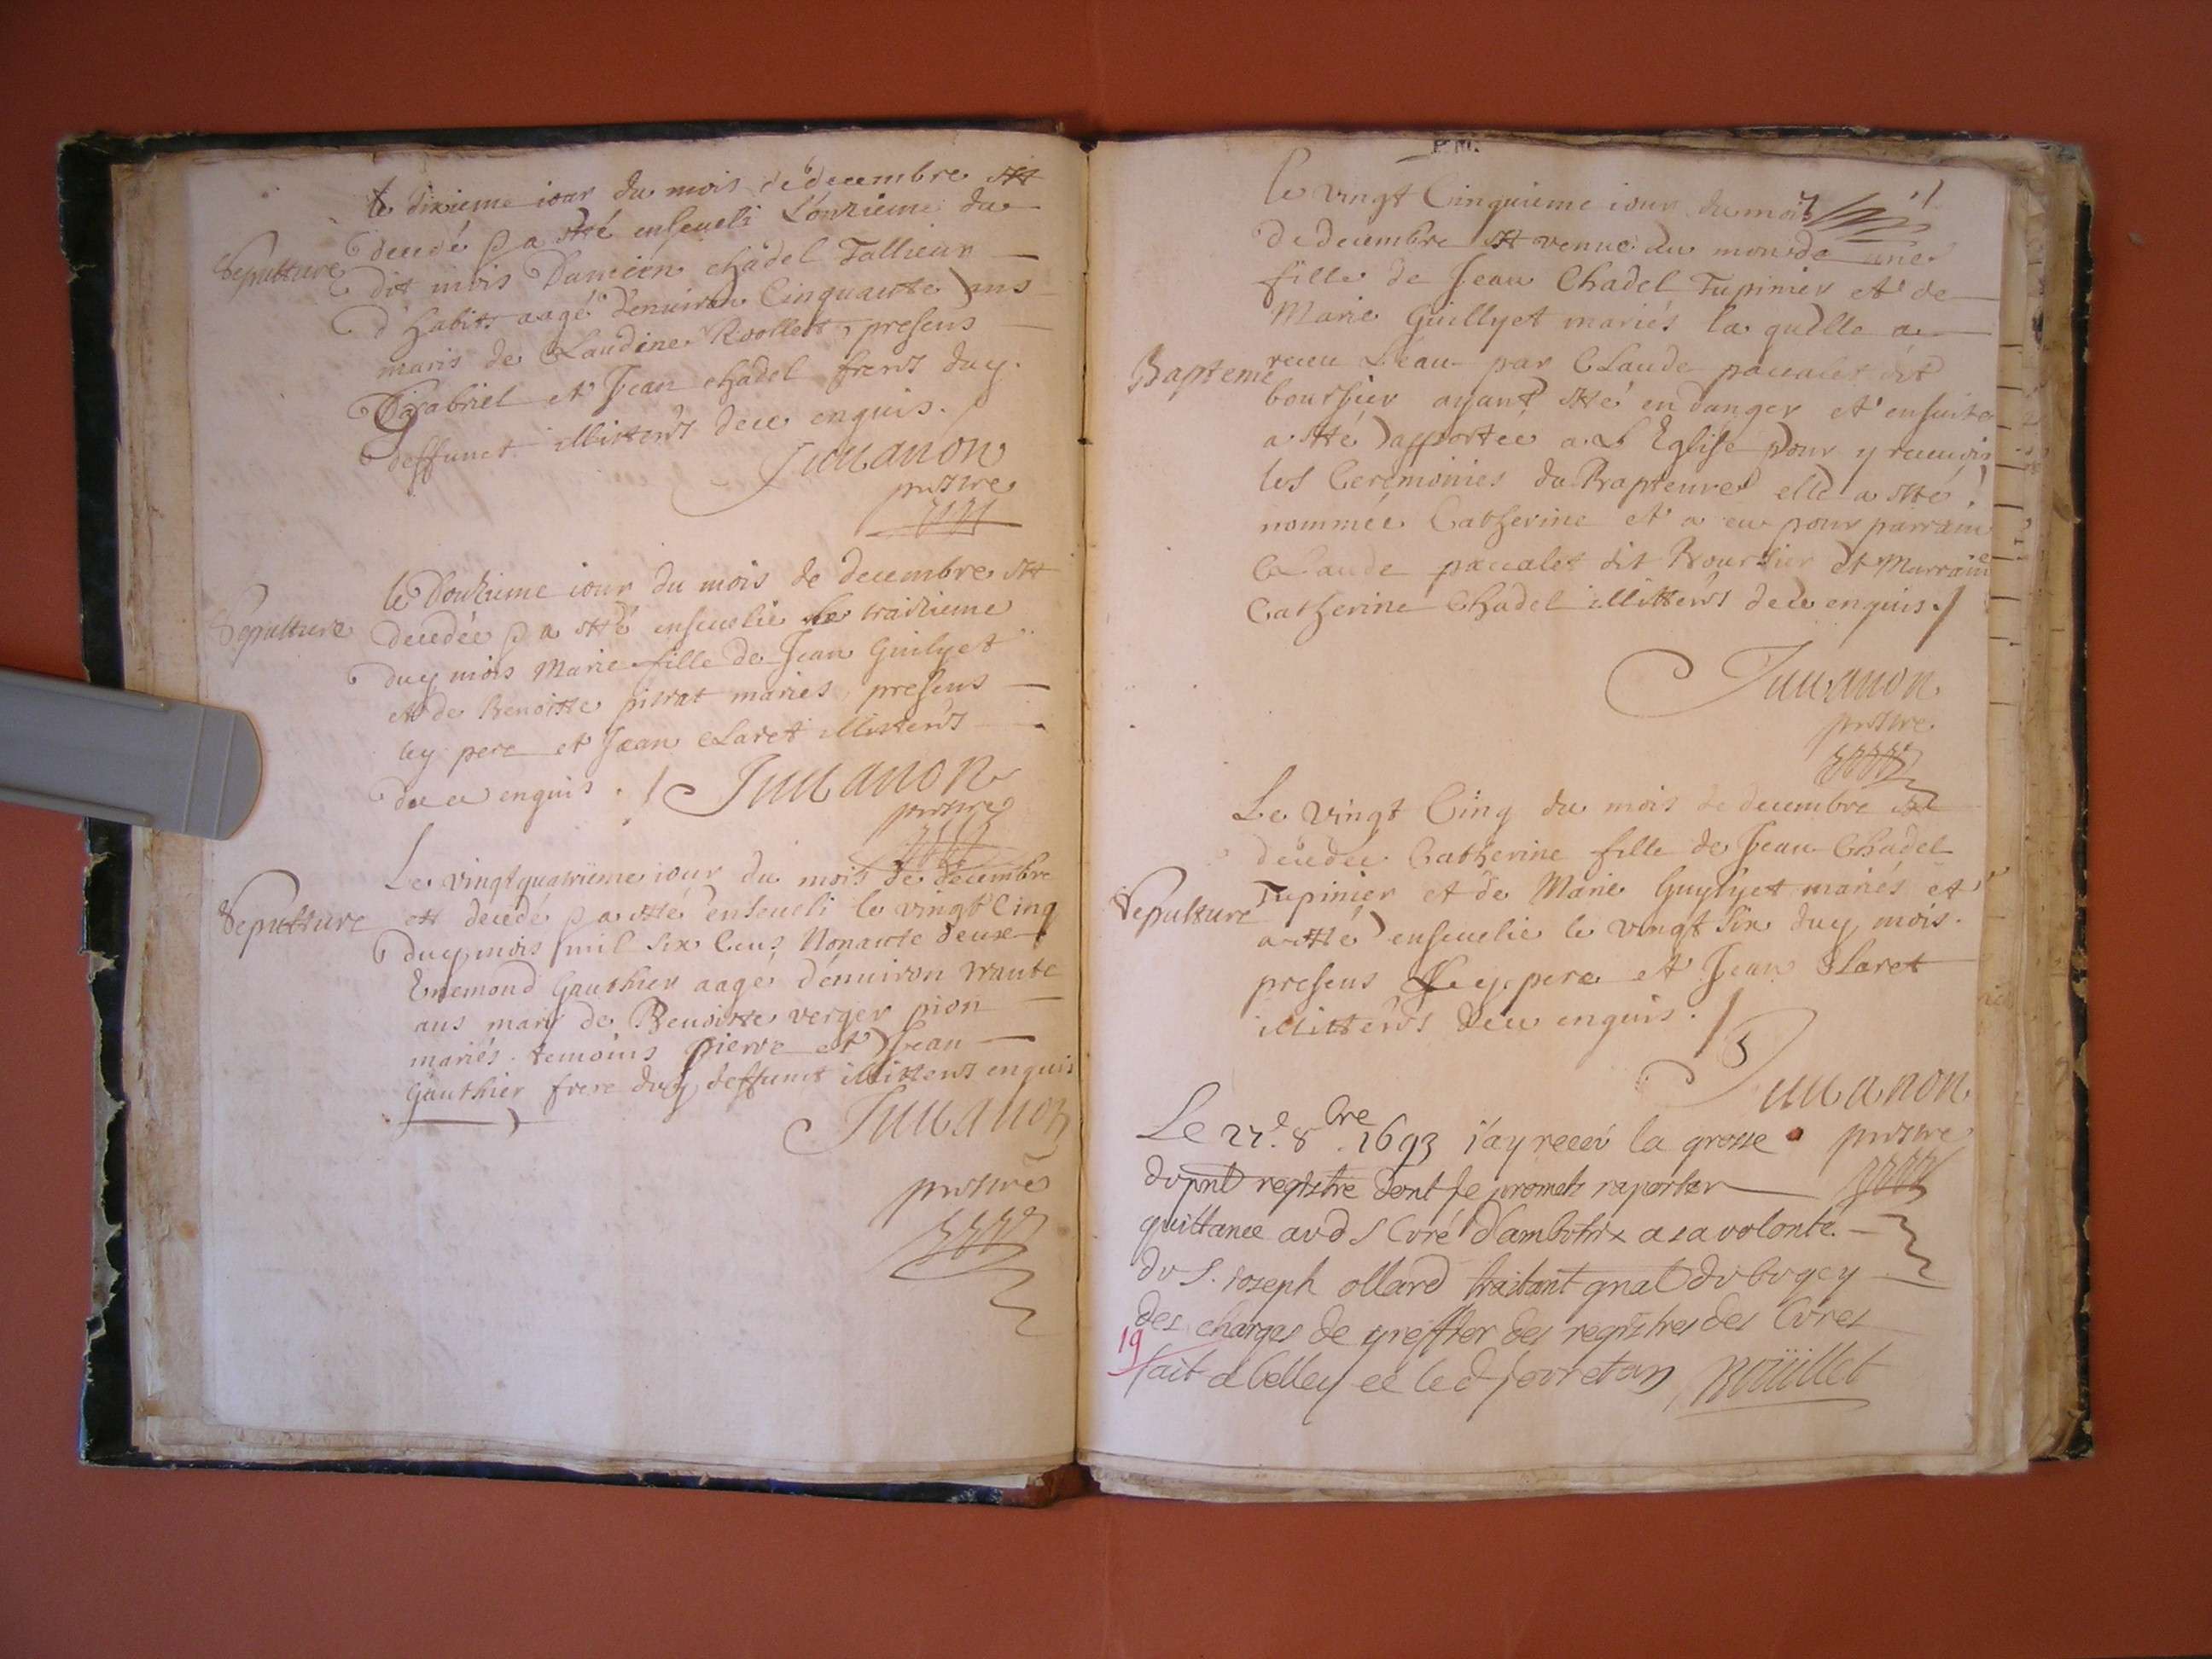 le dixieme iour du mois de decembre est
decedé & a esté enseueli L'onzieme du
Sepulture
dit mois Damien chadel Tallieur
d'habits aagé d'enuiron Cinquante ans
maris de Claudine Rvollet, presens
Gabriel et Jean chadel frers duy.
deffunct illiters de ce enquis.
Juuanon
prestre
le Douzieme iour du mois de decembre est
Sepulture
decedée & a esté enseuelie le traizieme
duy mois Marie fille de Jean Guilyet
et de Benoitte pitrat mariés, presens
ley pere et Jean Claret illiters
de ce enquis . /
Juuanon
prestre
Le vingtquatrieme iour du mois de decembre
Sepulture
est decedé & a esté enseueli le vingt Cinq
duy mois mil six Cens Nonante deux
Enemond Gauthier aagé d'enuiron trante
ans mary de Benoitte verger pion
mariés. temoins pierre et Jean
Gauthier frere duy deffunct illiters enquis
Juuanon
prestre
le vingt Cinquieme iour du mois
de decembre est venue au monde une
fille de Jean Chadel Tupinier et de
Marie Guillyet mariés la quelle a
Bapteme
receu L'eau par Claude paccalet dit
boursier ayant esté en danger et ensuite
a esté apportée a L'Eglise pour y receuoir
les Ceremonies du Bapteme elle a esté
nommée Catherine et a eu pour parrain
Claude paccalet dit Boursier et Marraine
Catherine Chadel illiters de ce enquis. /
Juuanon
prestre
Le vingt Cinq du mois de decembre est
decedée Catherine fille de Jean Chadel
Sepulture
Tupinier et de Marie Guylyet mariés et
a esté enseuelie le vingt six duy mois.
presens Ley pere et Jean Claret
illiters de ce enquis. /
Juuanon
prestre
Le 27e 8bre 1693 j'ay receu la grosse
du pnt registre dont je promets raporter
quittance aud s Curé d'ambutrix a sa volonté.
du S. Joseph ollard traitant gnal du bugey
des charges de greffier des registres des Cures
19
fait a belley ce led jour et an Boüillet